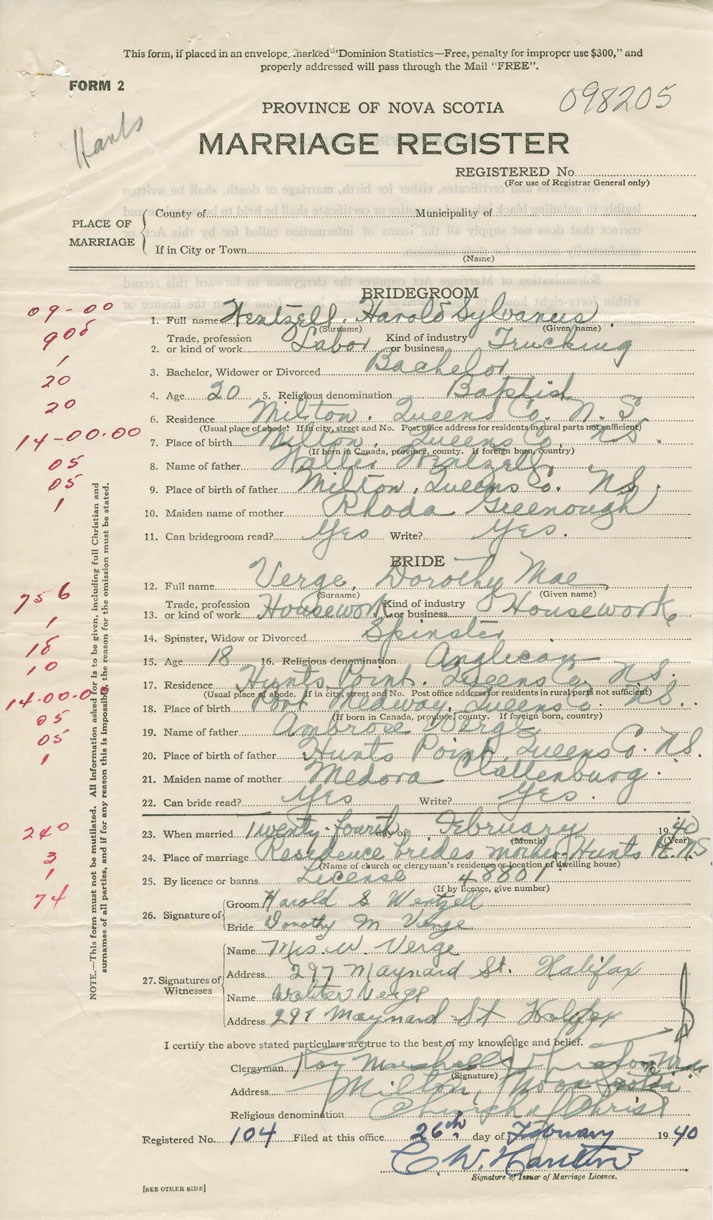 This form, if placed in an envelope, marked "Dominion Statistics—Free, penalty for improper use $300," and
properly addressed will pass through the Mail "FREE".
FORM 2
098205
PROVINCE OF NOVA SCOTIA
Hants
MARRIAGE REGISTER
REGISTERED No.
(For use of Registrar General only)
PLACE OF MARRIAGE
County of Municipality of
If in City or Town
(Name)
BRIDEGROOM
09-00
1. Full name Wentzell, Harold Sylvanus
(Surname) (Given name)
908
2. Trade, profession or kind of work Labor Kind of industry or business Trucking
1
3. Bachelor, Widower or Divorced Bachelor
20
4. Age 20 5. Religious denomination Baptist
20
6. Residence Milton, Queens Co. N.S.
(Usual place of abode. If in city, street and No. Post office address for residents in rural parts not sufficient)
14-00.00
7. Place of birth Milton, Queens Co. NS.
(If born in Canada, province, county. If foreign born, country)
05
8. Name of father Wentzell
05
9. Place of birth of father Milton, Queens Co. NS.
1
10. Maiden name of mother Rhoda Greenough
11. Can bridegroom read? Yes Write? Yes.
BRIDE
12. Full name Verge, Dorothy Mae
(Surname) (Given name)
756
13. Trade, profession or kind of work Housework Kind of industry or business Housework
1
14. Spinster, Widow or Divorced Spinster
18
15. Age 18 16. Religious denomination Anglican
10
17. Residence Hunts Point, Queens Co. N.S.
(Usual place of abode. If in city, street and No. Post office address for residents in rural parts not sufficient)
14-00-00
18. Place of birth Port Medway, Queens Co. NS.
(If born in Canada, province, county. If foreign born, country)
05
19. Name of father Ambrose Verge
05
20. Place of birth of father Hunts Point, Queens Co. NS.
1
21. Maiden name of mother Medora Clattenburg.
22. Can bride read? Yes Write? Yes.
240
23. When married Twenty-fourth day of February 1940
(Month) (Year)
3
24. Place of marriage Residence brides mother Hunts Pt. N.S.
(Name of church or clergyman's residence or location of dwelling house)
1
25. By licence or banns License 48801
(If by licence, give number)
74
26. Signature of
Groom Harold S Wentzell
Bride Dorothy M Verge
27. Signatures of Witnesses
Name Mrs. W. Verge
Address 297 Maynard St. Halifax
Name Walter Verge
Address 297 Maynard St Halifax
I certify the above stated particulars are true to the best of my knowledge and belief.
Clergyman Roy
(Signature)
Address Milton, Nova Scotia
Religious denomination Church of Christ
Registered No. 104 Filed at this office 26th day of February 1940
C. W.
Signature of Issuer of Marriage Licence.
[SEE OTHER SIDE]
NOTE.—This form must not be mutilated. All information asked for is to be given, including full Christian and
surnames of all parties, and if for any reason this is impossible, the reason for the omission must be stated.